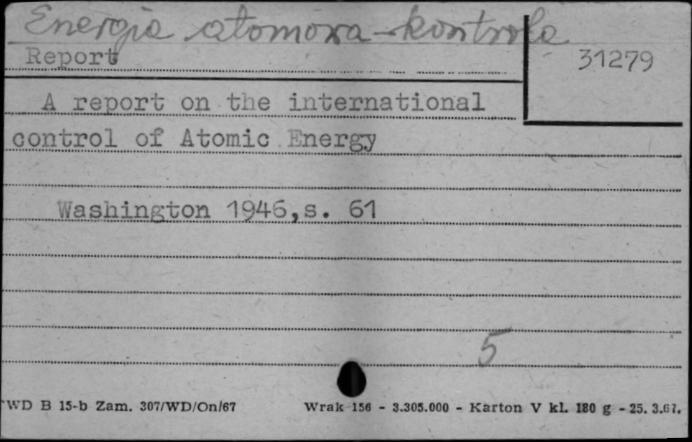 Energia atomowa - kontrola
Report
31279
A report on the international
control of Atomic Energy
Washington 1946,s. 61
5
WD B 15-b Zam. 307/WD/On/67 Wrak 156 - 3.305.000 - Karton V kl. 180 g - 25. 3.67.